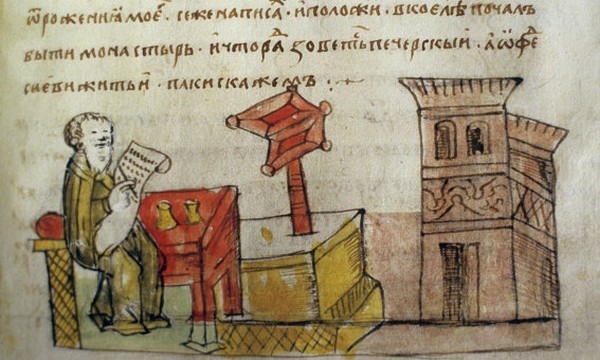 ѿ роженїѧ моѥ · се же написа · и положи · в кое лѣ почалъ
быти монастырь · и что ра зоветь печерскыи · а ѡ фе
сиеви житьи · паки скажемъ ·